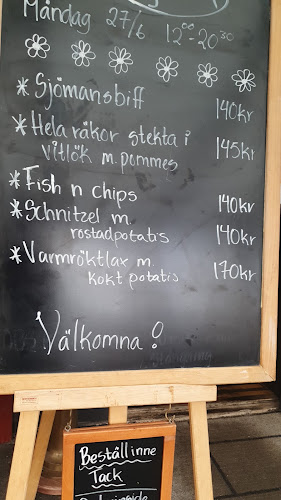 Måndag 27/6 12⁰⁰-20³⁰
* Sjömansbiff 140kr
* Hela räkor stekta i
vitlök m. pommes 145kr
* Fish n chips 140kr
* Schnitzel m.
rostadpotatis 140kr
* Varmrökt lax m.
kokt potatis 170kr
Välkomna!
Beställ inne
Tack